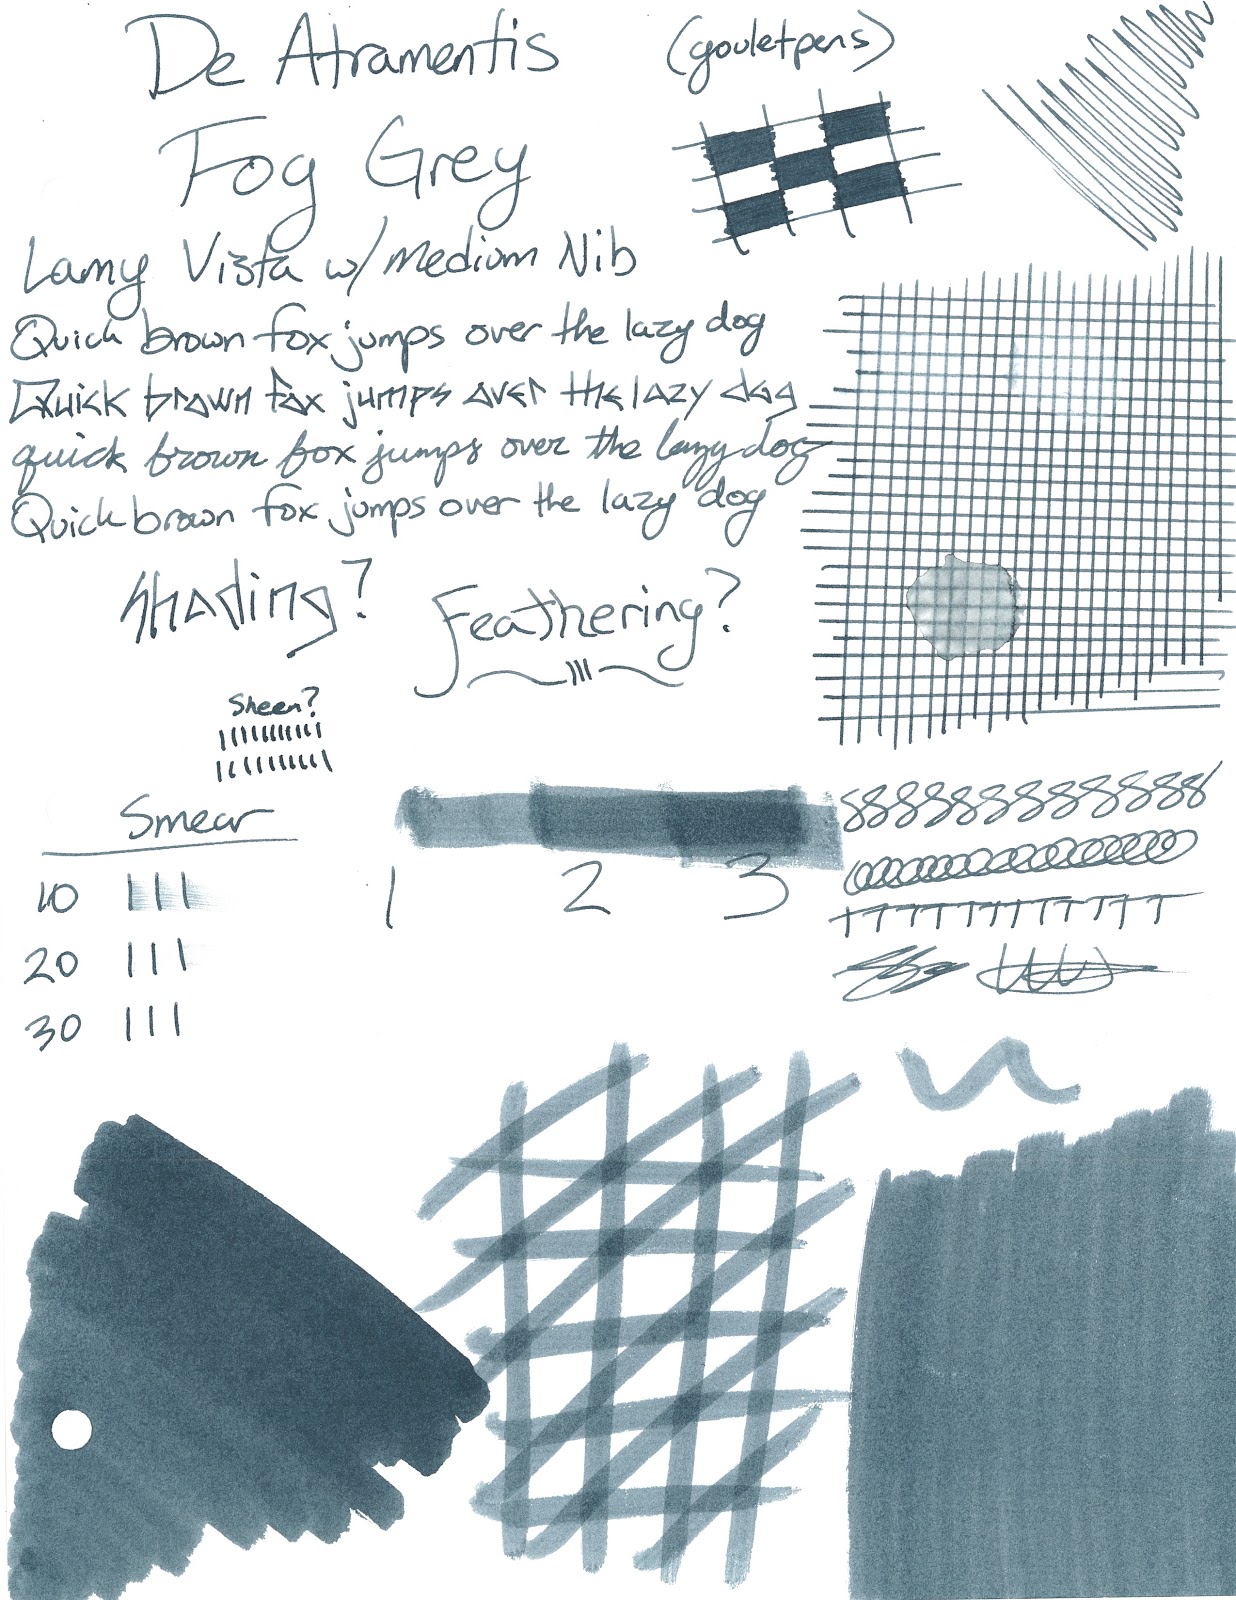 De Atramentis
(gouletpens)
Fog Grey
Lamy Vista w/ medium Nib
Quick brown fox jumps over the lazy dog
Quick brown fox jumps over the lazy dog
quick brown fox jumps over the lazy dog
Quick brown fox jumps over the lazy dog
Shading?
Feathering?
Sheen?
Smear
10
20
30
1 2 3